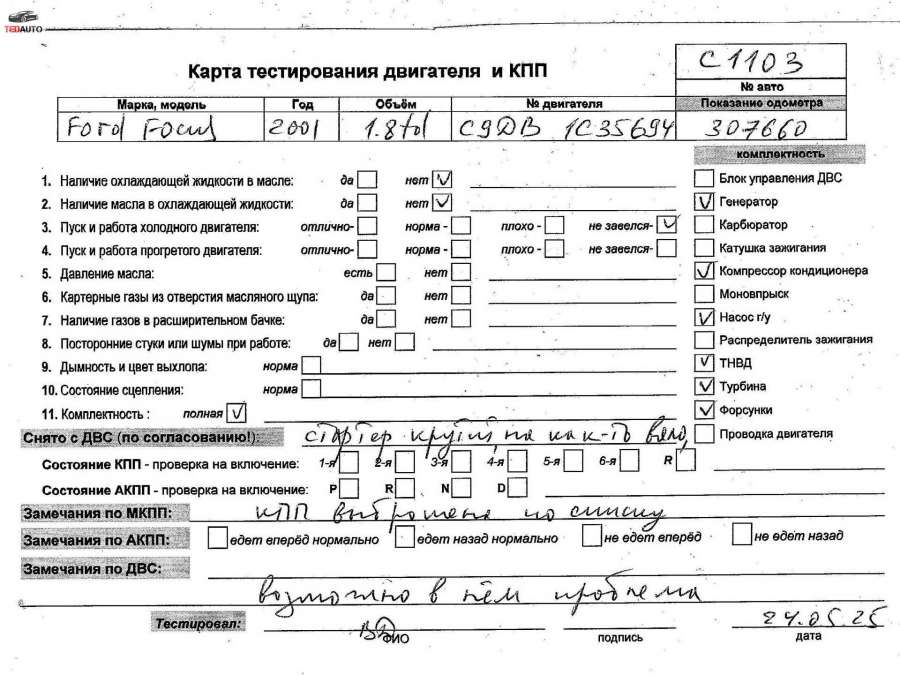 TEDAUTO
C1103
Карта тестирования двигателя и КПП
№ авто
Марка, модель Год Объём № двигателя Показание одометра
Ford Focus 2001 1.8td C9DB 1C35694 307660
комплектность
1. Наличие охлаждающей жидкости в масле: да нет Блок управления ДВС
2. Наличие масла в охлаждающей жидкости: да нет Генератор
3. Пуск и работа холодного двигателя: отлично- норма - плохо - не завелся- Карбюратор
4. Пуск и работа прогретого двигателя: отлично- норма - плохо - не завелся- Катушка зажигания
5. Давление масла: есть нет Компрессор кондиционера
6. Картерные газы из отверстия масляного щупа: да нет Моновпрыск
7. Наличие газов в расширительном бачке: да нет Насос г/у
8. Посторонние стуки или шумы при работе: да нет Распределитель зажигания
9. Дымность и цвет выхлопа: норма ТНВД
10. Состояние сцепления: норма Турбина
11. Комплектность : полная Форсунки
Снято с ДВС (по согласованию!): стартер крутил, но как-то вяло, Проводка двигателя
Состояние КПП - проверка на включение: 1-я 2-я 3-я 4-я 5-я 6-я R
Состояние АКПП - проверка на включение: P R N D
Замечания по МКПП: КПП выброшена по списку
Замечания по АКПП: едет вперёд нормально едет назад нормально не едет вперёд не едет назад
Замечания по ДВС:
возможно в нём проблема
Тестировал: ВД 24.05.25
ФИО подпись дата